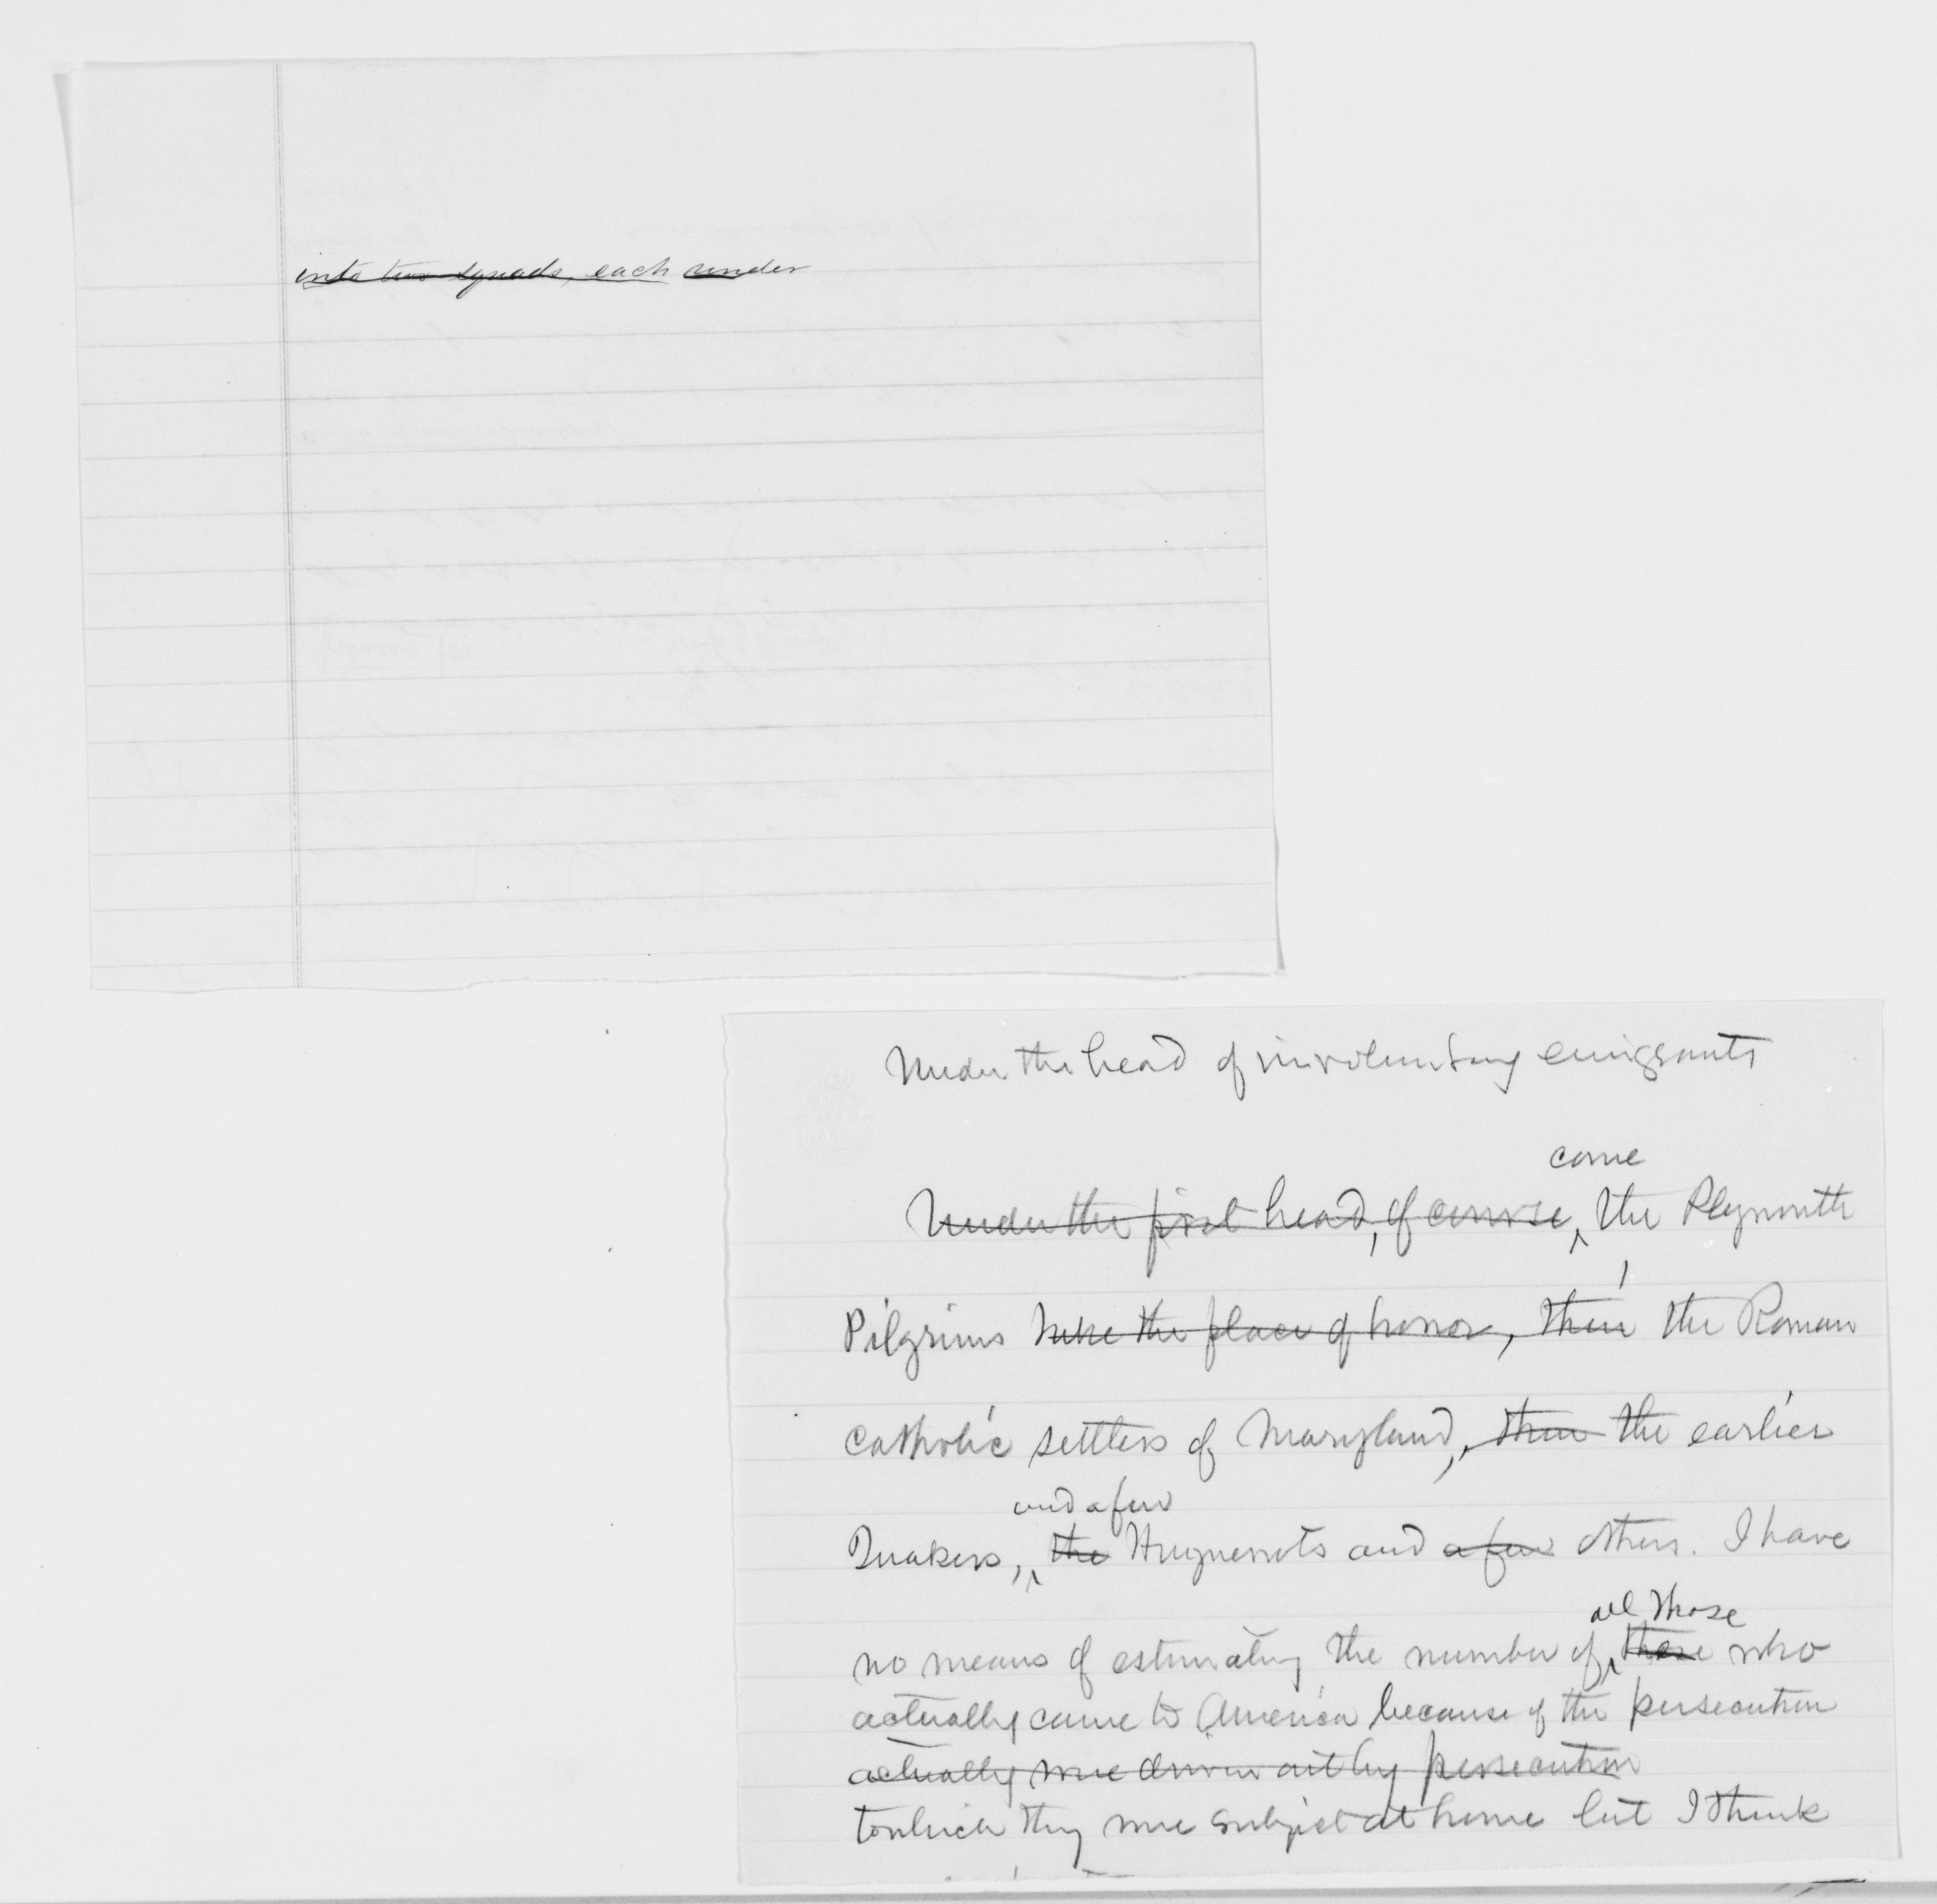 into two squads, each under
Under the head of involuntary emigrants
come
Under the first head, of course, the Plymouth
Pilgrims take the place of honor, then the Roman
Catholic settlers of Maryland, then the earlier
and a few
Quakers, the Huguenots and a few others. I have
all those
no means of estimating the number of these who
actually came to America because of the persecution
actually were driven out by persecution
to which they were subject at home but I think